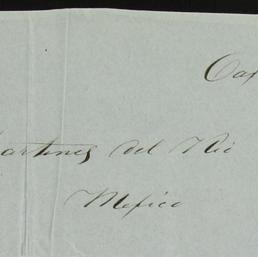 Martinez del Rio
Mexico